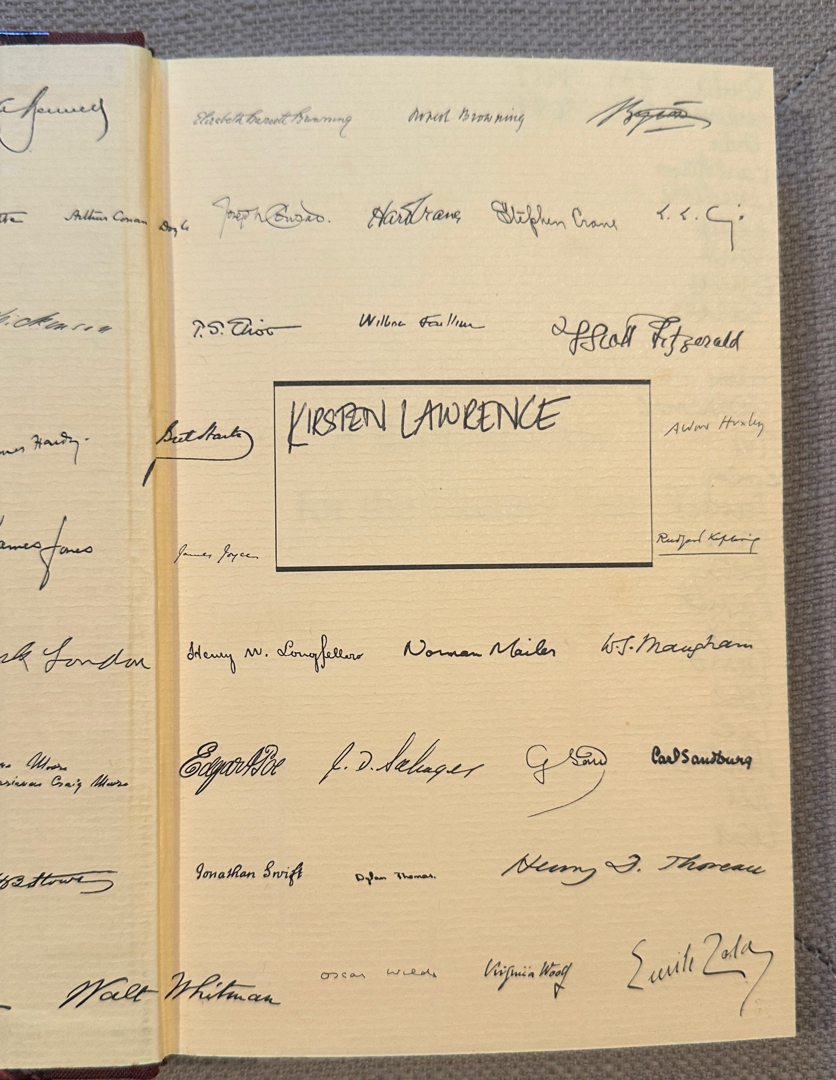 Elizabeth Barrett Browning Robert Browning Byron
Arthur Conan Doyle Joseph Conrad. Hart Crane Stephen Crane
T.S. Eliot William Faulkner F Scott Fitzgerald
KIRSTEN LAWRENCE
Hardy Bret Harte Aldous Huxley
James Jones James Joyce Rudyard Kipling
London Henry W. Longfellow Norman Mailer W.S. Maugham
Moore
Craig Moore Edgar A Poe J. D. Salinger G Sand Carl Sandburg
HB Stowe Jonathan Swift Dylan Thomas. Henry D. Thoreau
Walt Whitman Oscar Wilde Virginia Woolf Emile Zola